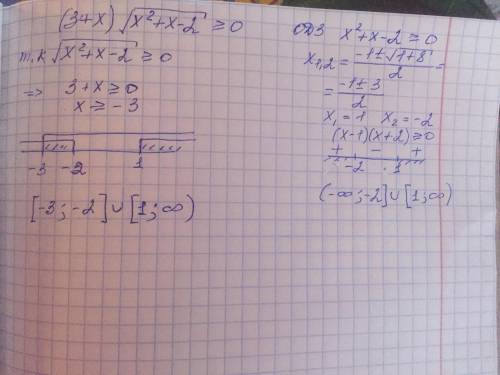 (3+x)√(x²+x-2) ≥ 0
т.к √(x²+x-2) ≥ 0
=> 3+x ≥ 0
x ≥ -3
-3 -2 1
[-3; -2] ∪ [1; ∞)
ОДЗ x²+x-2 ≥ 0
x₁,₂ = (-1±√(1+8))/2 =
= (-1±3)/2
x₁ = 1 x₂ = -2
(x-1)(x+2) ≥ 0
+ - +
-2 1
(-∞; -2] ∪ [1; ∞)